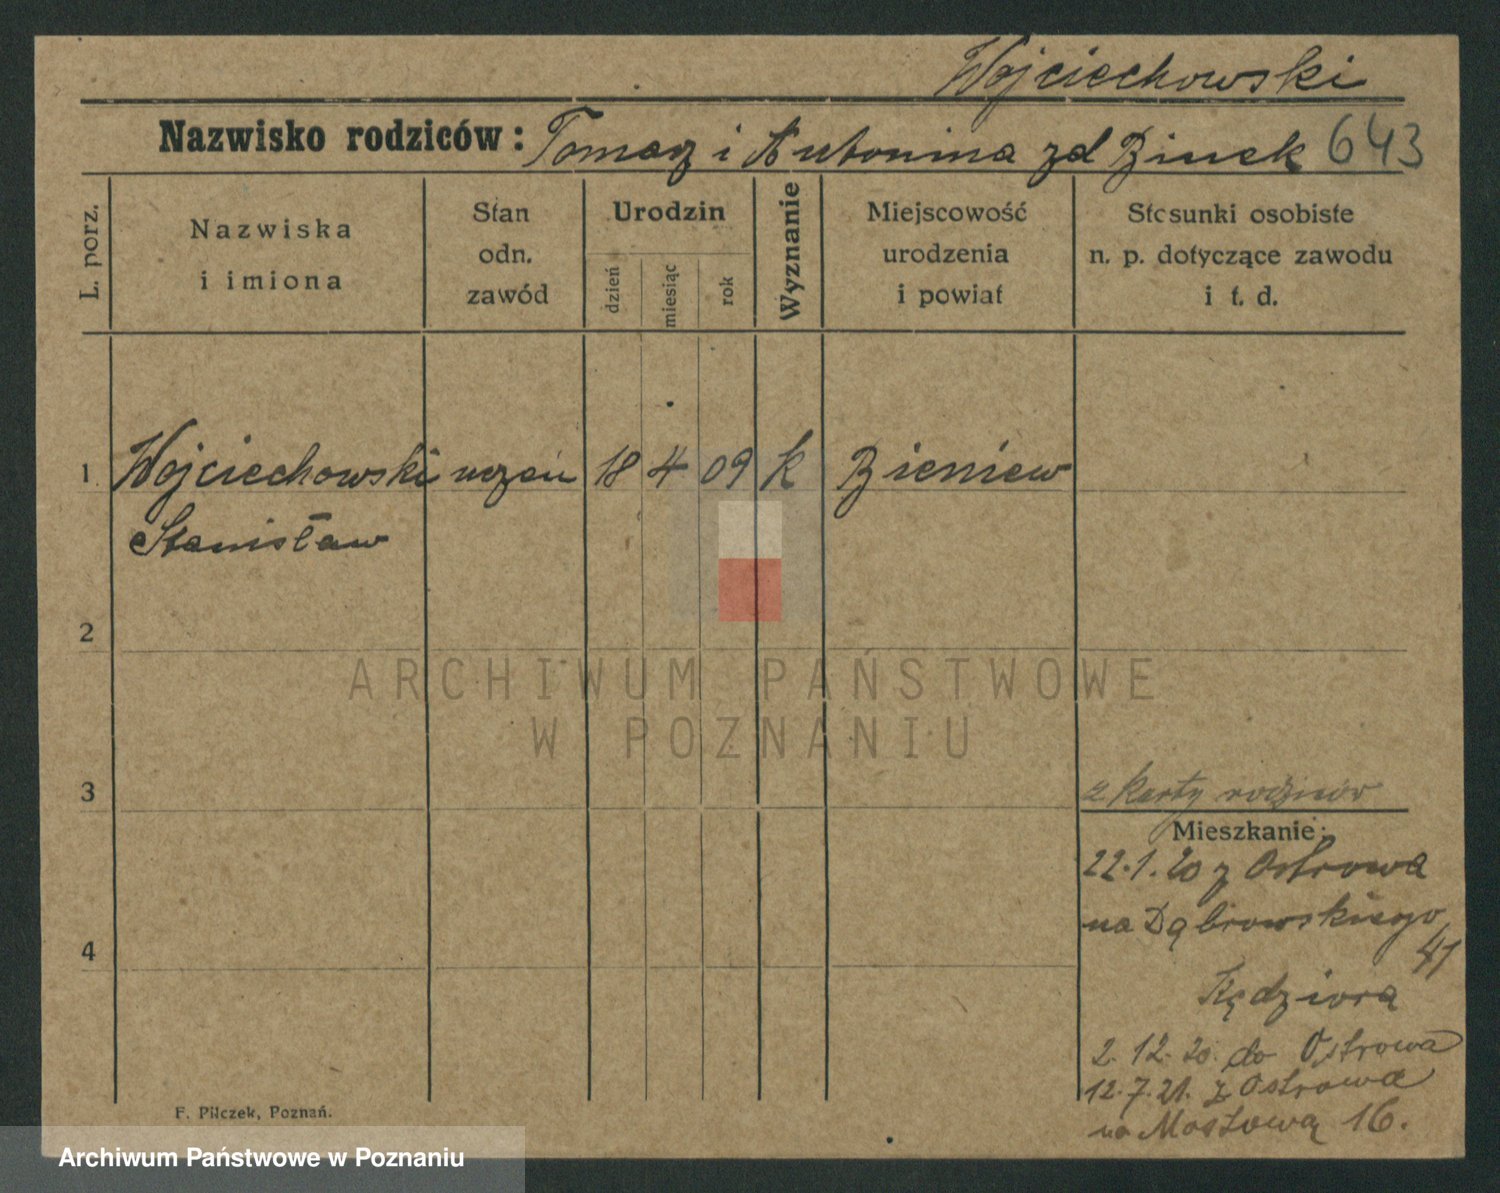 Wojciechowski
Nazwisko rodziców: Tomasz i Antonina zd Binek 643
L. porz.
Nazwiska
i imiona
Stan
odn.
zawód
Urodzin
dzień
miesiąc
rok
Wyznanie
Miejscowość
urodzenia
i powiat
Stosunki osobiste
n. p. dotyczące zawodu
i t. d.
1. Wojciechowski uczeń 18 4 09 k Bieniew
Stanisław
2
ARCHIWUM PAŃSTWOWE
W POZNANIU
3
z karty rodziców
Mieszkanie:
22.1.20 z Ostrowa
na Dąbrowskiego
41
4
Kędziora
2.12.20. do Ostrowa
12.7.21. z Ostrowa
na Mostową 16.
F. Pilczek, Poznań.
Archiwum Państwowe w Poznaniu